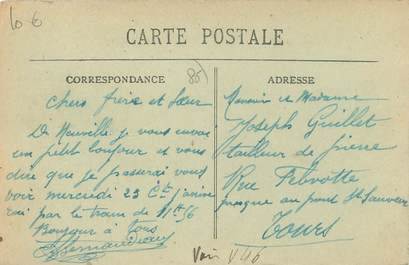 10 €
CARTE POSTALE
CORRESPONDANCE
ADRESSE
Chers frère et Sœur
De Neuville je vous envoi
un petit bonjour et vous
dire que je passerai vous
voir mercredi 23 Ct j'arrive
rai par le train de 11h 56
Bonjour à tous
Monsieur et Madame
Joseph Guillet
tailleur de pierre
Rue Febvotte
presque au pont St Sauveur
Tours
Voir V46